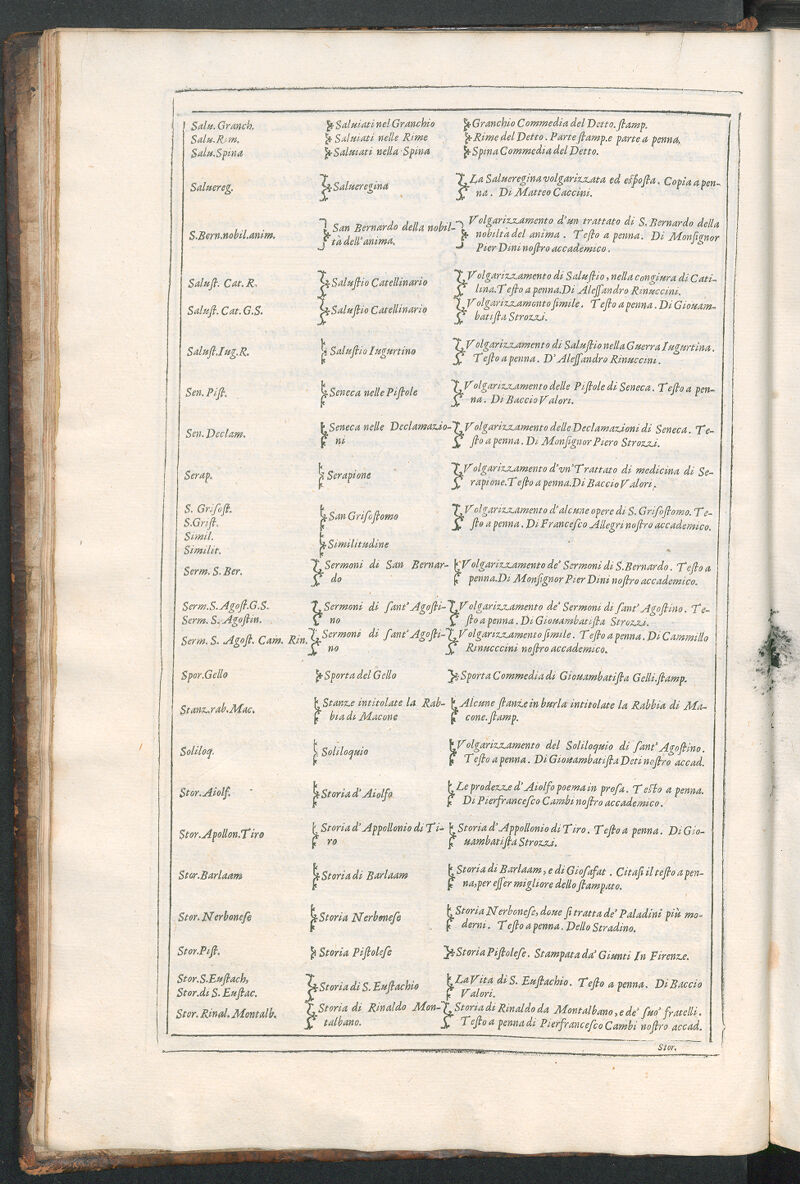 Salu. Granch. Saluiati nel Granchio Granchio Commedia del Detto. ſtamp.
Salu. Rim. Saluiati nelle Rime Rime del Detto. Parte ſtamp. e parte a penna.
Salu. Spina Saluiati nella Spina Spina Commedia del Detto.
Saluereg. Salueregina La Salueregina volgarizzata ed eſpoſta. Copia a pen-
na. Di Matteo Caccini.
S. Bern. nobil. anim. San Bernardo della nobil- Volgarizzamento d'un trattato di S. Bernardo della
tà dell'anima. nobiltà del anima. Teſto a penna. Di Monſignor
Pier Dini noſtro accademico.
Saluſt. Cat. R. Saluſtio Catellinario Volgarizzamento di Saluſtio, nella congiura di Cati-
lina. Teſto a penna. Di Aleſſandro Rinuccini.
Saluſt. Cat. G. S. Saluſtio Catellinario Volgarizzamento ſimile. Teſto a penna. Di Giouam-
batiſta Strozzi.
Saluſt. Iug. R. Saluſtio Iugurtino Volgarizzamento di Saluſtio nella Guerra Iugurtina.
Teſto a penna. D' Aleſſandro Rinuccini.
Sen. Piſt. Seneca nelle Piſtole Volgarizzamento delle Piſtole di Seneca. Teſto a pen-
na. Di Baccio Valori.
Sen. Declam. Seneca nelle Declamazio- Volgarizzamento delle Declamazioni di Seneca. Te-
ni ſto a penna. Di Monſignor Piero Strozzi.
Serap. Serapione Volgarizzamento d'vn' Trattato di medicina di Se-
rapione. Teſto a penna. Di Baccio Valori.
S. Griſoſt.
S. Griſt. San Griſoſtomo Volgarizzamento d'alcune opere di S. Griſoſtomo. Te-
ſto a penna. Di Franceſco Allegri noſtro accademico.
Simil.
Similit. Similitudine
Serm. S. Ber. Sermoni di San Bernar- Volgarizzamento de' Sermoni di S. Bernardo. Teſto a
do penna. Di Monſignor Pier Dini noſtro accademico.
Serm. S. Agoſt. G. S. Sermoni di ſant' Agoſti- Volgarizzamento de' Sermoni di ſant' Agoſtino. Te-
Serm. S. Agoſtin. no ſto a penna. Di Giouambatiſta Strozzi.
Serm. S. Agoſt. Cam. Rin. Sermoni di ſant' Agoſti- Volgarizzamento ſimile. Teſto a penna. Di Cammillo
no Rinucccini noſtro accademico.
Spor. Gello Sporta del Gello Sporta Commedia di Giouambatiſta Gelli. ſtamp.
Stanz. rab. Mac. Stanze intitolate la Rab- Alcune ſtanze in burla intitolate la Rabbia di Ma-
bia di Macone cone. ſtamp.
Soliloq. Soliloquio Volgarizzamento del Soliloquio di ſant' Agoſtino.
Teſto a penna. Di Giouambatiſta Deti noſtro accad.
Stor. Aiolf. Storia d' Aiolfo Le prodezze d' Aiolfo poema in proſa. Teſto a penna.
Di Pierfranceſco Cambi noſtro accademico.
Stor. Apollon. Tiro Storia d' Appollonio di Ti- Storia d' Appollonio di Tiro. Teſto a penna. Di Gio-
ro uambatiſta Strozzi.
Stor. Barlaam Storia di Barlaam Storia di Barlaam, e di Gioſafat. Citaſi il teſto a pen-
na, per eſſer migliore dello ſtampato.
Stor. Nerboneſe Storia Nerboneſe Storia Nerboneſe, doue ſi tratta de' Paladini più mo-
derni. Teſto a penna. Dello Stradino.
Stor. Piſt. Storia Piſtoleſe Storia Piſtoleſe. Stampata da' Giunti In Firenze.
Stor. S. Euſtach. Storia di S. Euſtachio La Vita di S. Euſtachio. Teſto a penna. Di Baccio
Stor. di S. Euſtac. Valori.
Stor. Rinal. Montalb. Storia di Rinaldo Mon- Storia di Rinaldo da Montalbano, e de' ſuo' fratelli.
talbano. Teſto a penna di Pierfranceſco Cambi noſtro accad.
Stor.